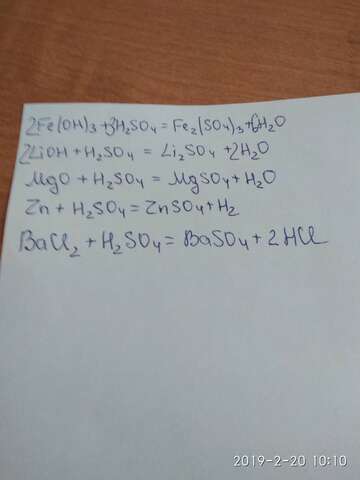 2Fe(OH)3+3H2SO4 = Fe2(SO4)3+6H2O
2LiOH + H2SO4 = Li2SO4 +2H2O
MgO + H2SO4 = MgSO4+H2O
Zn + H2SO4 = ZnSO4+H2
BaCl2 + H2SO4 = BaSO4 + 2HCl
2019-2-20 10:10